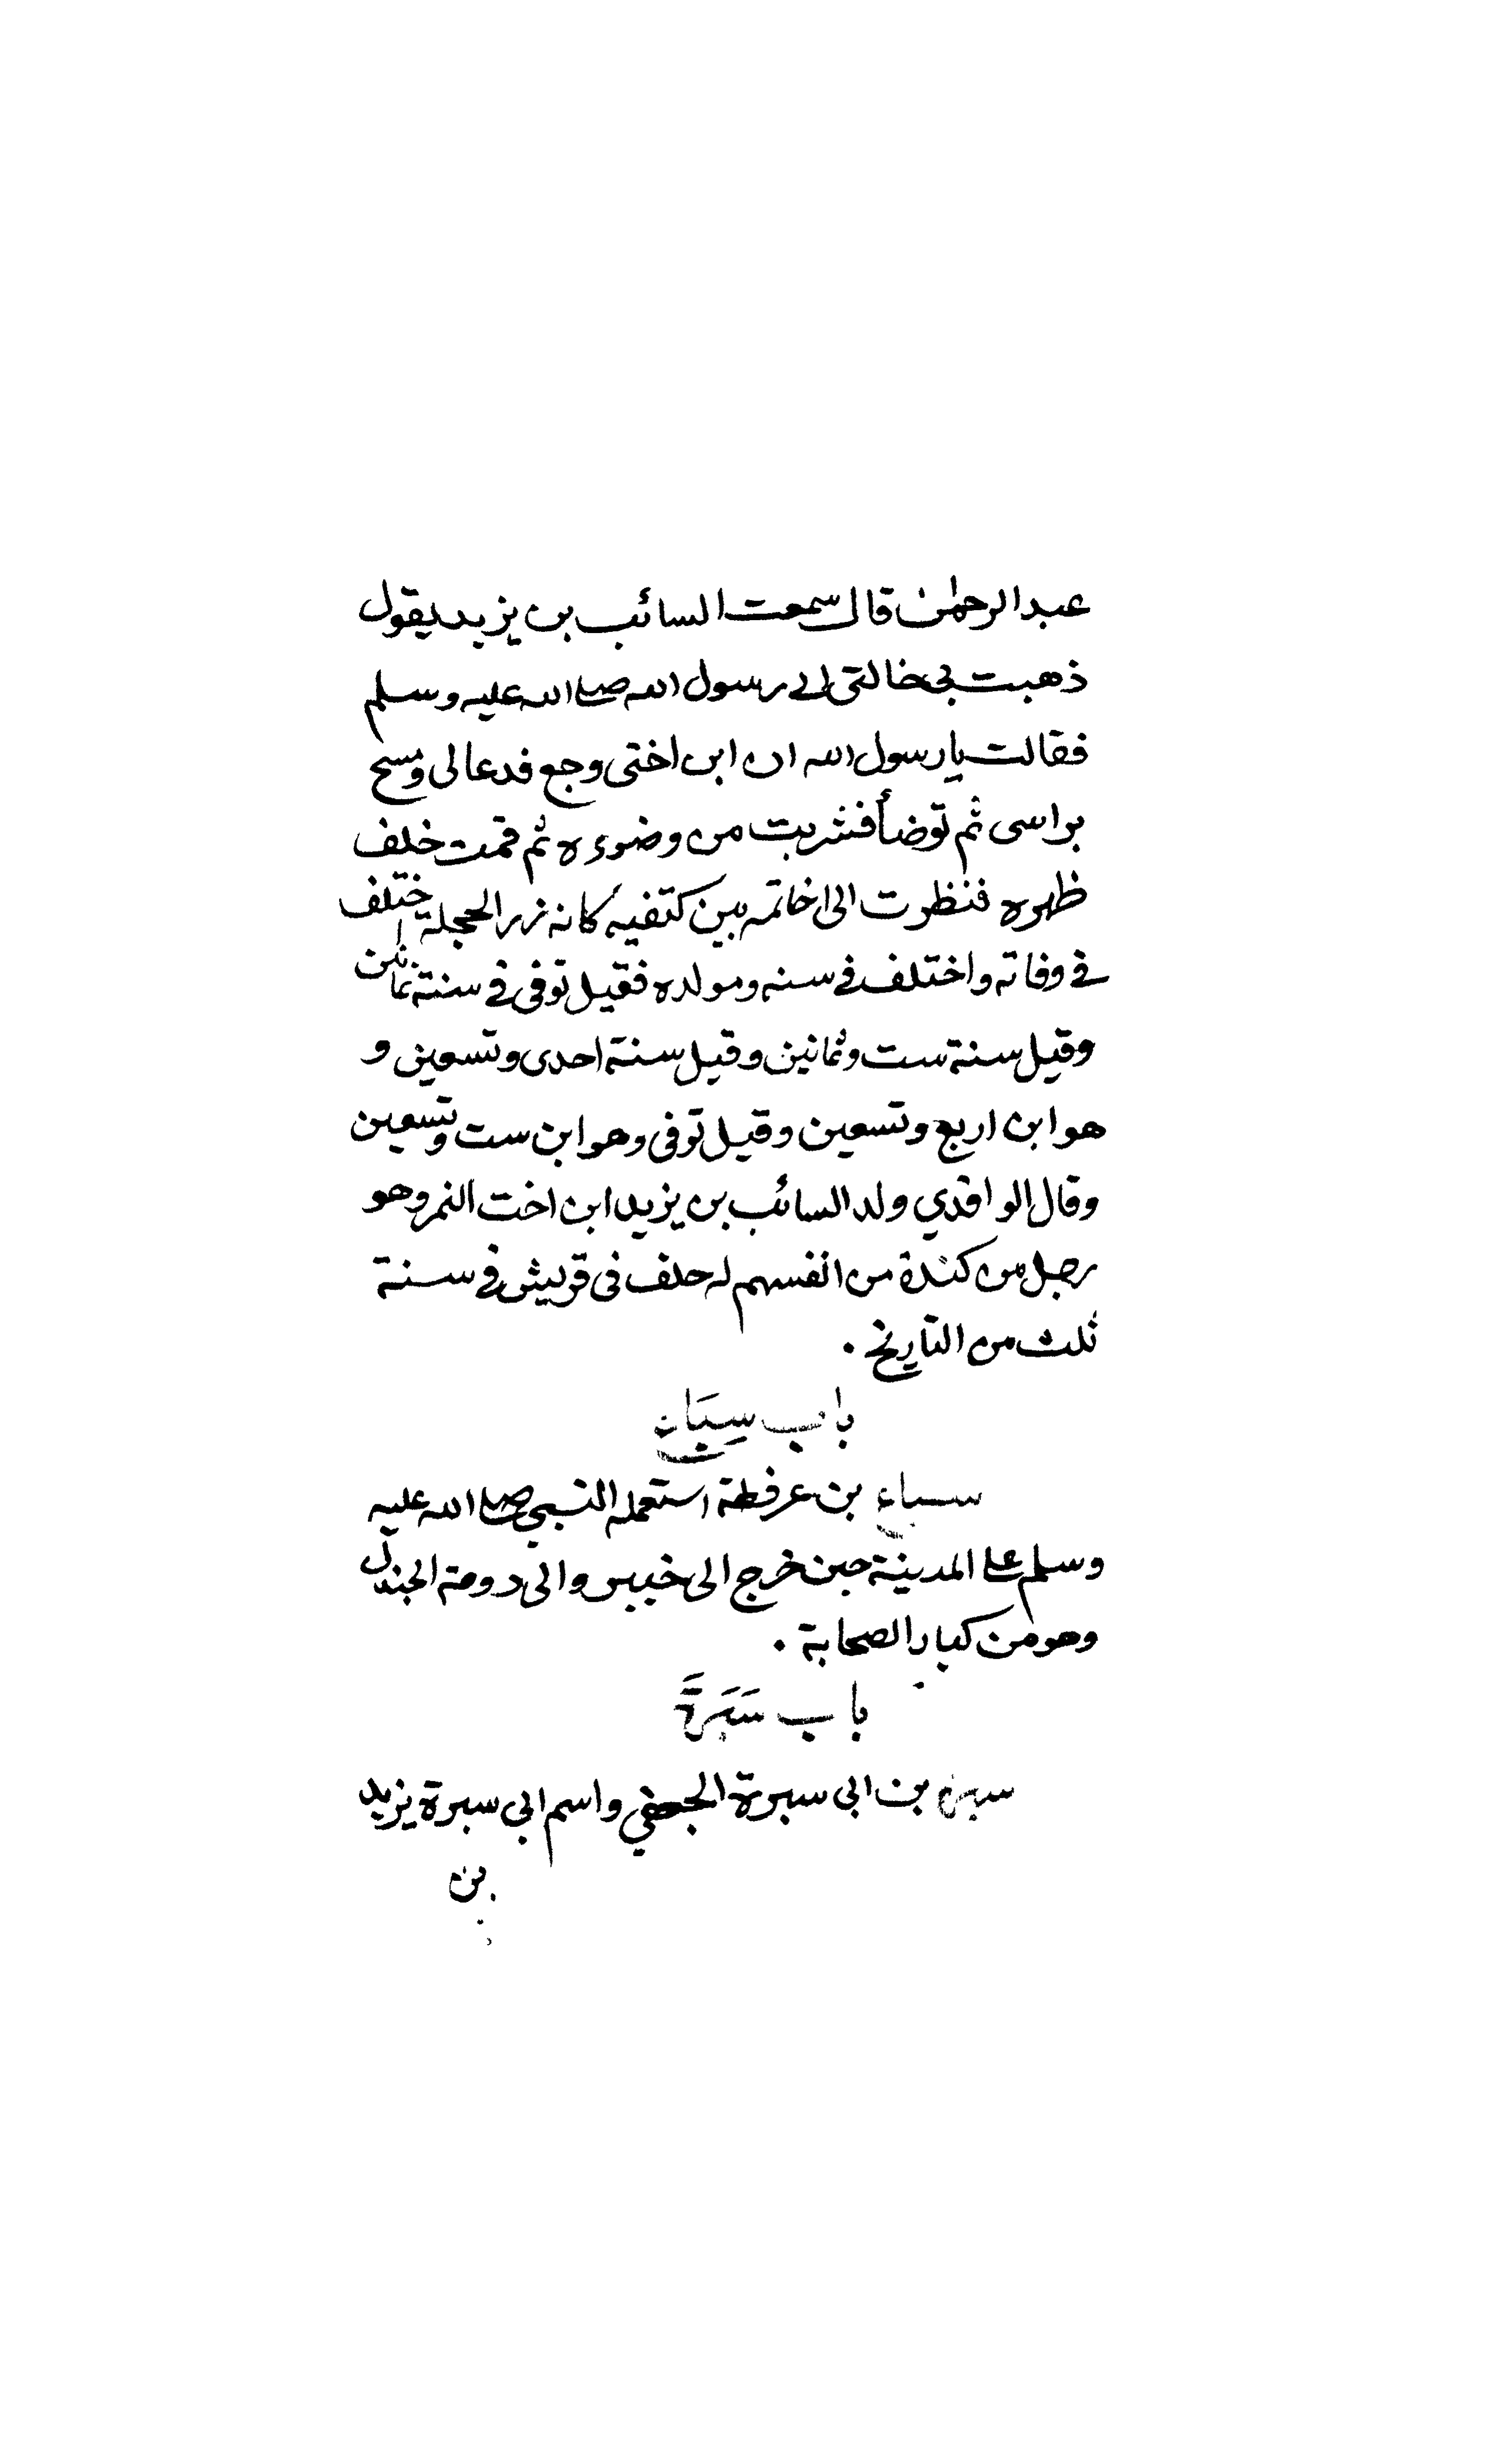 عبد الرحمٰن قال سمعت السائب بن يزيد يقول
ذهبت بي خالتي الى رسول الله صلى الله عليه وسلم
فقالت يا رسول الله ان ابن اختي وجع فدعا لي ومسح
براسي ثم توضأ فشربت من وضوءه ثم قمت خلف
ظهره فنظرت الى خاتمه بين كتفيه كانه زر الحجلة اختلف
في وفاته واختلف في سنه ومولده فقيل توفى في سنة ثمانين
وقيل سنة ست وثمانين وقيل سنة احدى وتسعين و
هو ابن اربع وتسعين وقيل توفى وهو ابن ست وتسعين
وقال الواقدي ولد السائب بن يزيد ابن اخت النمر وهو
رجل من كندة من انفسهم له حلف في قريش في سنة
ثلث من التاريخ .
باب سِبَاع
سباع بن عرفطة استعمله النبي صلى الله عليه
وسلم على المدينة حين خرج الى خيبر والى دومة الجندل
وهو من كبار الصحابة .
باب سَبَرَةَ
سبرة بن ابي سبرة الجعفي واسم ابي سبرة يزيد
بن